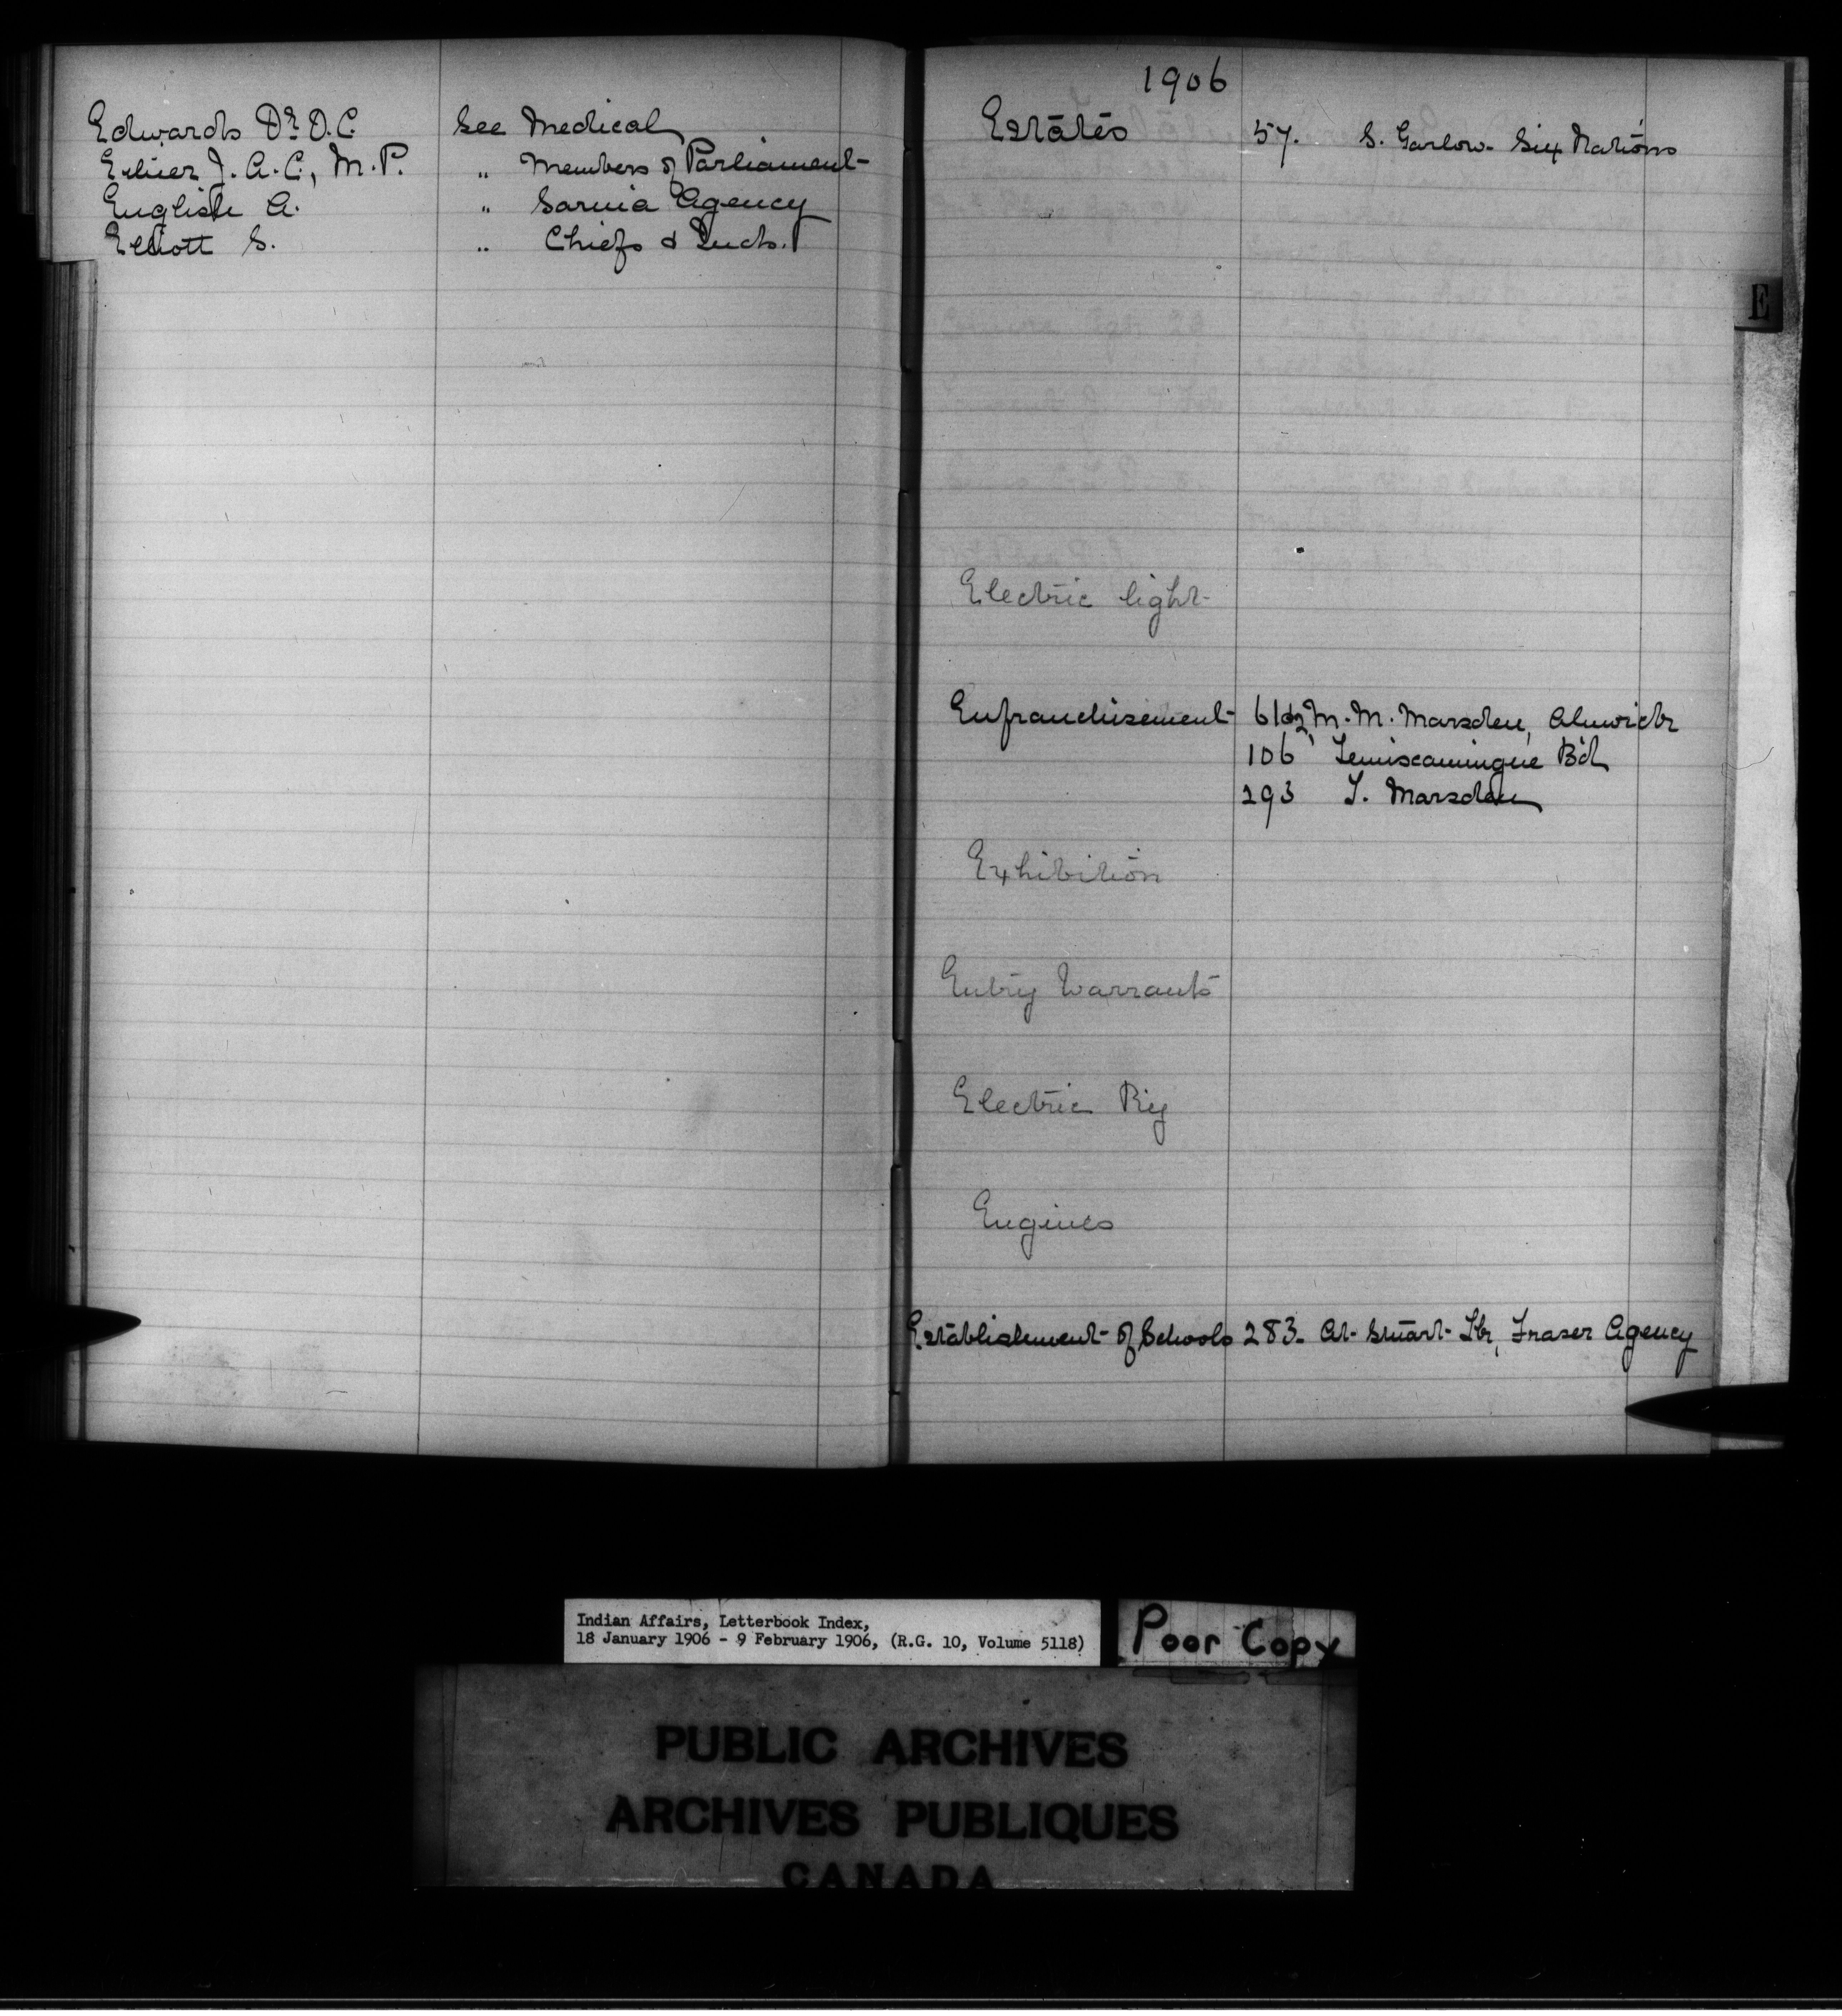 Edwards Dr. O.C. See Medical
Ethier J.A.C., M.P. " Members of Parliament
English A. " Sarnia Agency
Elliott S. " Chiefs & Inds.
1906
Estates 57. S. Garlow. Six Nations
E
Electric light
Enfranchisement M. M. Marsden, Alnwick
106 Temiscamingue Bd
293 T. Marsden
Exhibition
Entry Warrants
Electric Rig
Engines
Establishment of Schools 283. At Stuart Lk, Fraser Agency
Indian Affairs, Letterbook Index,
18 January 1906 - 9 February 1906, (R.G. 10, Volume 5118)
Poor Copy
PUBLIC ARCHIVES
ARCHIVES PUBLIQUES
CANADA